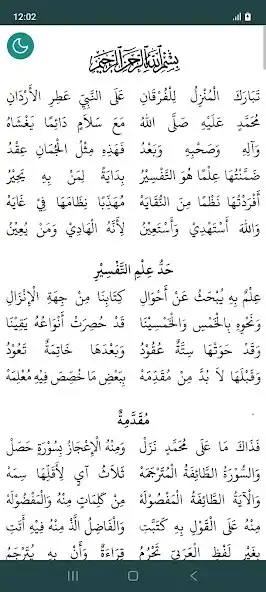 12:02
بِسْمِ اللهِ الرَّحْمٰنِ الرَّحِيْمِ
تَبَارَكَ الْمُنْزِلُ لِلْفُرْقَانِ عَلَى النَّبِيِّ عَطِرِ الْأَرْدَانِ
مُحَمَّدٍ عَلَيْهِ صَلَّى اللهُ مَعَ سَلَامٍ دَائِمًا يَغْشَاهُ
وَآلِهِ وَصَحْبِهِ وَبَعْدُ فَهَذِهِ مِثْلُ الْجُمَانِ عِقْدُ
ضَمَّنْتُهَا عِلْمًا هُوَ التَّفْسِيْرُ بِدَايَةً لِمَنْ بِهِ يَحِيْرُ
أَفْرَدْتُهَا نَظْمًا مِنَ النُّقَايَهْ مُهَذِّبًا نِظَامَهَا فِيْ غَايَهْ
وَاللهَ أَسْتَهْدِيْ وَأَسْتَعِيْنُ لِأَنَّهُ الْهَادِيْ وَمَنْ يُعِيْنُ
حَدُّ عِلْمِ التَّفْسِيْرِ
عِلْمٌ بِهِ يُبْحَثُ عَنْ أَحْوَالِ كِتَابِنَا مِنْ جِهَةِ الْإِنْزَالِ
وَنَحْوِهِ بِالْخَمْسِ وَالْخَمْسِيْنَا قَدْ حُصِرَتْ أَنْوَاعُهُ يَقِيْنَا
وَقَدْ حَوَتْهَا سِتَّةٌ عُقُوْدُ وَبَعْدَهَا خَاتِمَةٌ تَعُوْدُ
وَقَبْلَهَا لَا بُدَّ مِنْ مُقَدِّمَهْ بِبَعْضِ مَا خُصِّصَ فِيْهِ مُعْلِمَهْ
مُقَدِّمَةٌ
فَذَاكَ مَا عَلَى مُحَمَّدٍ نَزَلْ وَمِنْهُ الْإِعْجَازُ بِسُوْرَةٍ حَصَلْ
وَالسُّوْرَةُ الطَّائِفَةُ الْمُتَرْجَمَهْ ثَلَاثُ آيٍ لِأَقَلِّهَا سِمَهْ
وَالْآيَةُ الطَّائِفَةُ الْمَفْصُوْلَهْ مِنْ كَلِمَاتٍ مِنْهُ وَالْمَفْضُوْلَهْ
مِنْهُ عَلَى الْقَوْلِ بِهِ كَتَبَّتِ وَالْفَاضِلُ الَّذْ مِنْهُ فِيْهِ أَتَتِ
بِغَيْرِ لَفْظِ الْعَرَبِيِّ تَحْرُمُ قِرَاءَةٌ وَأَنْ بِهِ يُتَرْجَمُ